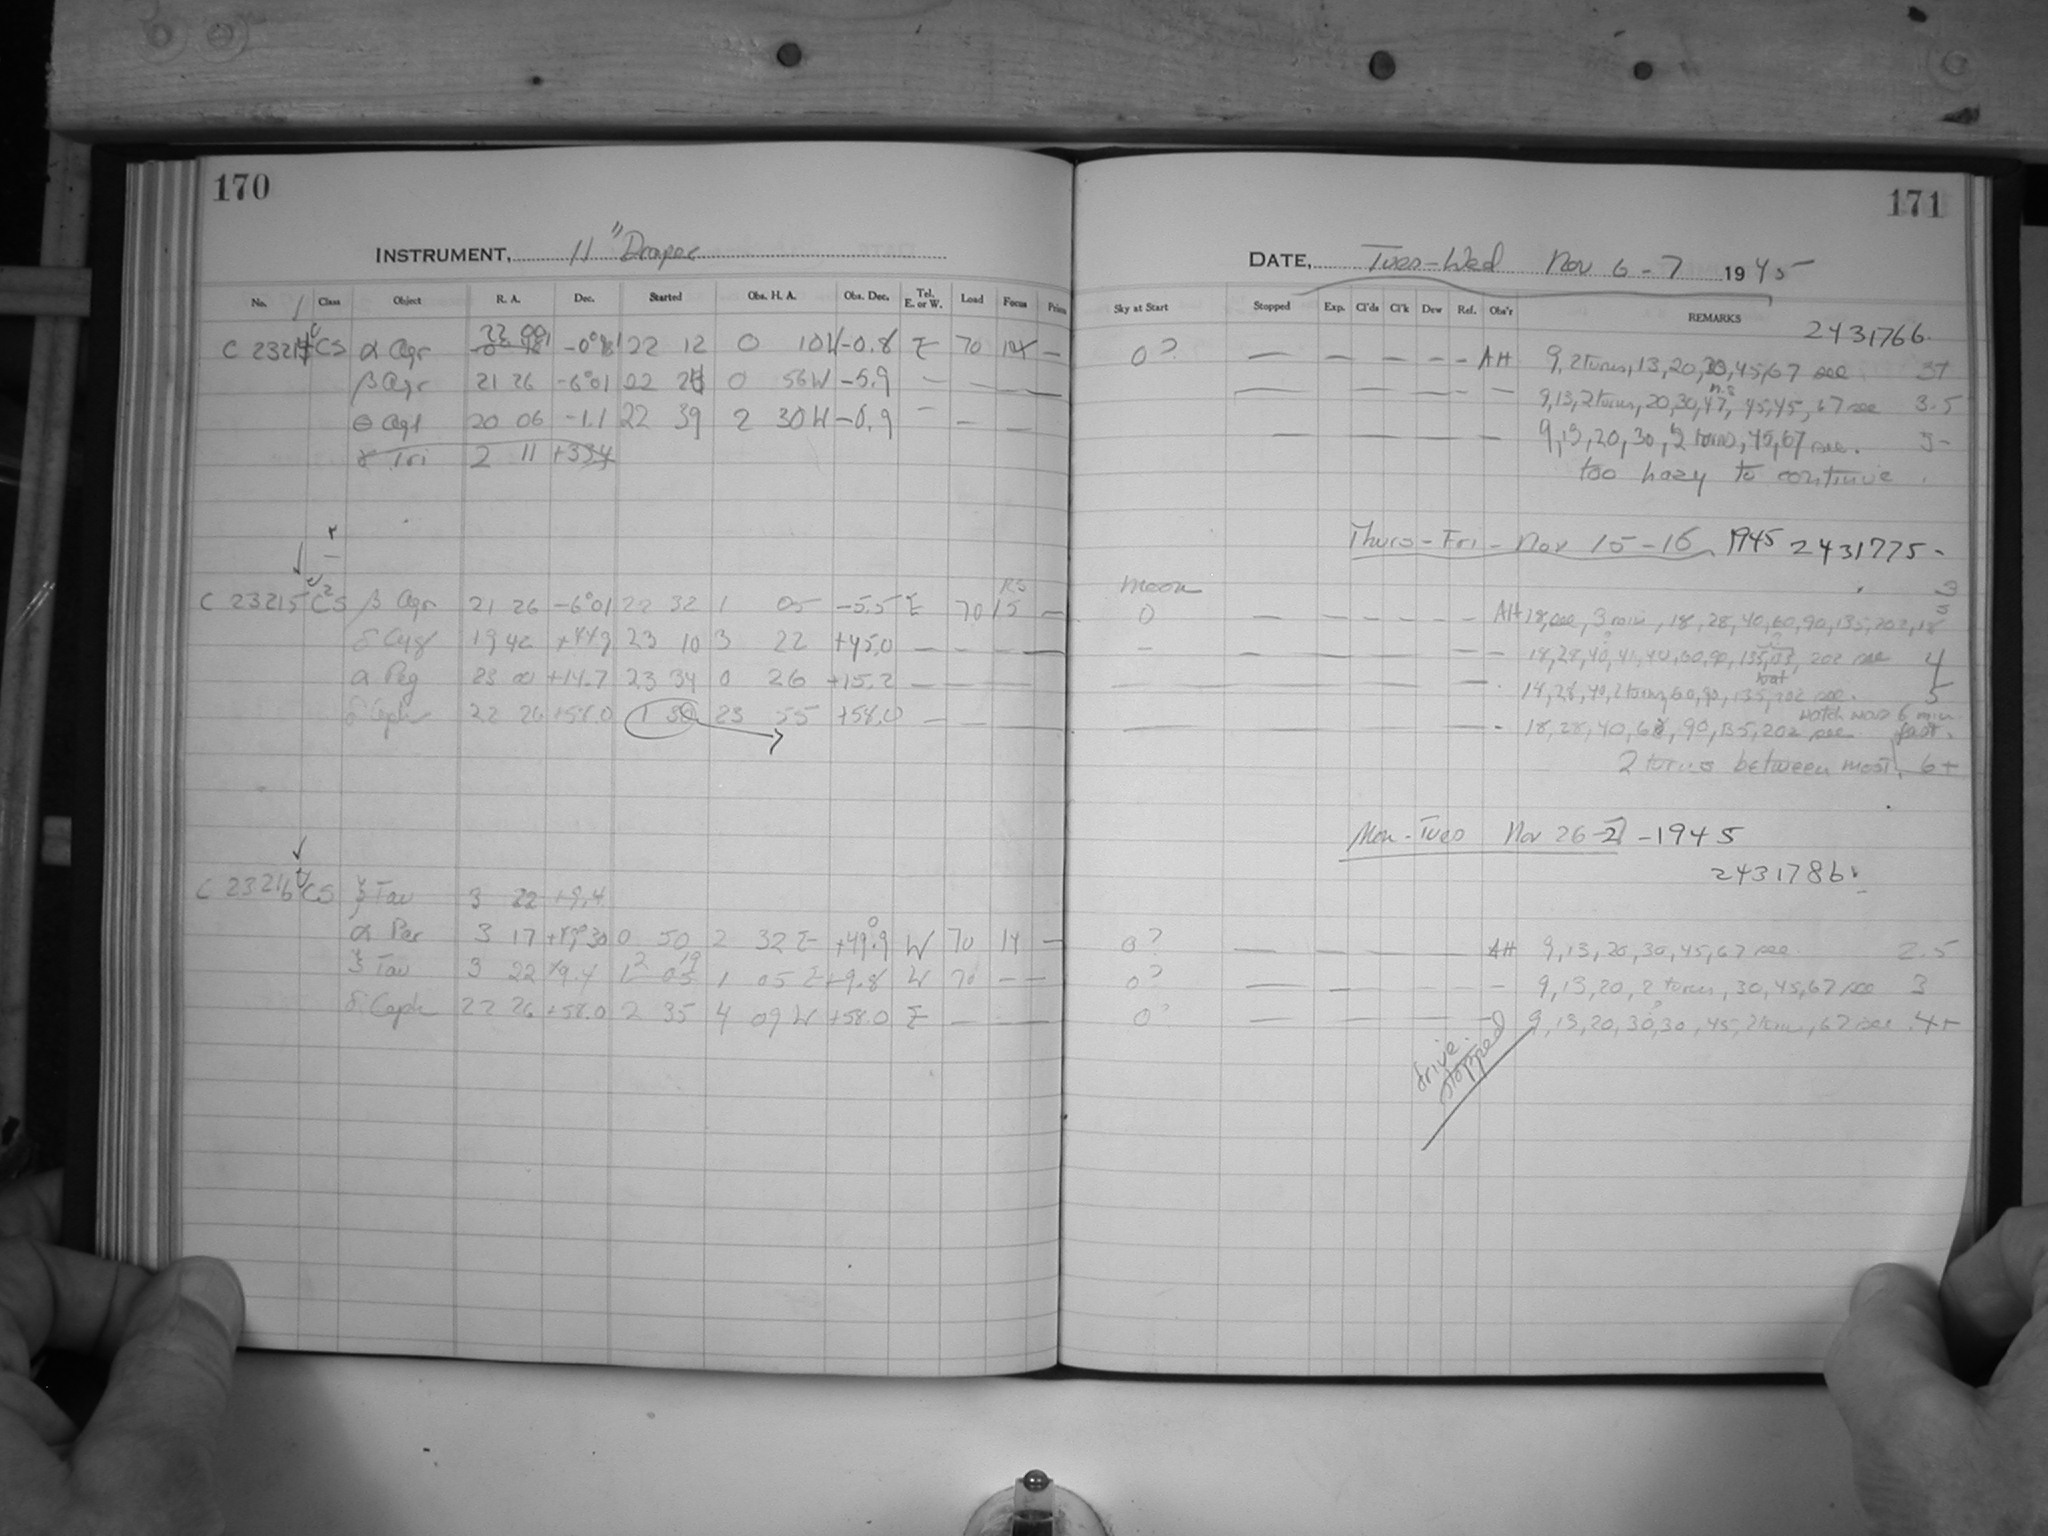 170
INSTRUMENT, 11" Draper
No. Class Object R. A. Dec. Started Obs. H. A. Obs. Dec. Tel. E. or W. Load Focus
22 00
C 23214 CS α Aqr -0°61 22 12 0 10W -0.8 E 70 14 —
β Aqr 21 26 -6°01 22 0 56W -5.9 — — —
θ Aql 20 06 -1.1 22 39 2 30W -0.9 — — —
γ Tri 2 11 +334
C 23215 CS β Aqr 21 26 -6°01 22 32 1 05 -5.5 E 70 15 —
δ Cyg 19 42 +449 23 10 3 22 +45.0 — — — —
α Peg 23 00 +14.7 23 34 0 26 +15.2 — — —
δ Ceph 22 26 +58.0 1 30 23 55 +58.0 — —
C 23216 CS ξ Tau 3 22 +9.4
α Per 3 17 +49°30 0 50 2 32 E +49.9 W 70 14 —
ξ Tau 3 22 +9.4 1 05 1 05 E +9.8 W 70 — —
δ Ceph 22 26 +58.0 2 35 4 09 W +58.0 E — — —
171
DATE, Tues-Wed Nov 6-7 1945
Sky at Start Stopped Exp. Cl'ds Cl'k Dew Ref. Obs'r REMARKS
2431766.
0? — — — — — AH 9, 2 turns, 13, 20, 30, 45, 67 sec 37
n.s
9, 13, 2 turns, 20, 30, 47, 45, 45, 67 sec 3.5
9, 13, 20, 30, 2 turns, 45, 67 sec. 5-
too hazy to continue.
Thurs-Fri - Nov 15-16 1945 2431775-
moon 3
0 — — — — — AH 18 sec, 3 min, 18, 28, 40, 60, 90, 135, 202, 18
18, 28, 40, 40, 40, 60, 90, 135, 202 sec 4
18, 28, 40, 2 turns, 60, 90, 135, 202 sec. 5
watch was 6 min
18, 28, 40, 60, 90, 135, 202 sec fast.
2 turns between most. 6+
Mon-Tues Nov 26-27 -1945
2431786.
0? — — AH 9, 13, 20, 30, 45, 67 sec 2.5
0? — — — 9, 13, 20, 2 turns, 30, 45, 67 sec 3
0? — — — 9, 13, 20, 30, 30, 45, 2 turns, 67 sec 4+
drive
stopped